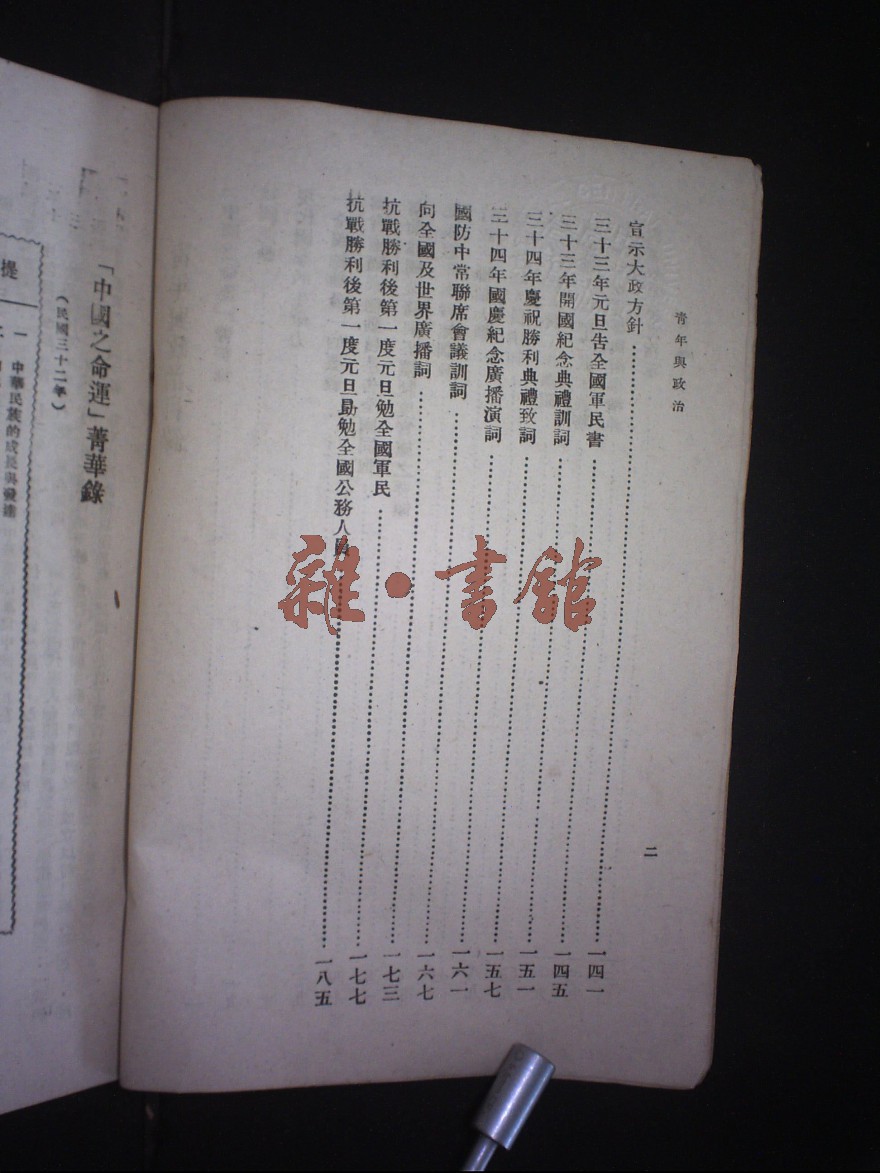 青年與政治
二
宣示大政方針……一四一
三十三年元旦告全國軍民書……一四五
三十三年開國紀念典禮訓詞……一五一
三十四年慶祝勝利典禮致詞……一五七
三十四年國慶紀念廣播演詞……一六一
國防中常聯席會議訓詞……一六七
向全國及世界廣播詞……一七三
抗戰勝利後第一度元旦勉全國軍民……一七七
抗戰勝利後第一度元旦勗勉全國公務人員……一八五
雜·書館
「中國之命運」菁華錄
（民國三十二年）
提
一 中華民族的成長與發達